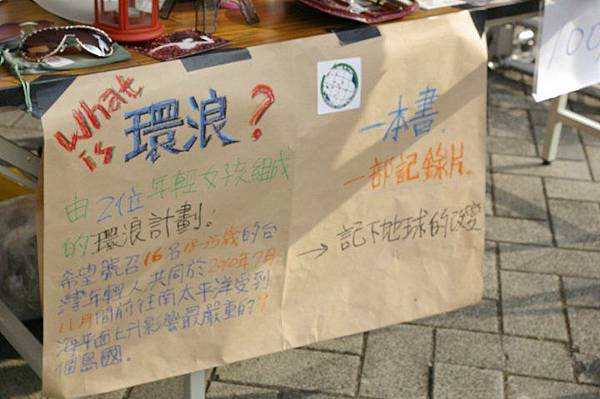 What is 環浪?
由2位年輕女孩組成
的環浪計劃。
希望號召16名18-35歲的台
灣年輕人共同於2010年7月
11月間前往南太平洋受到
海平面上升影響最嚴重的9
個島國。
一本書.
一部記錄片.
→ 記下地球的改變
100